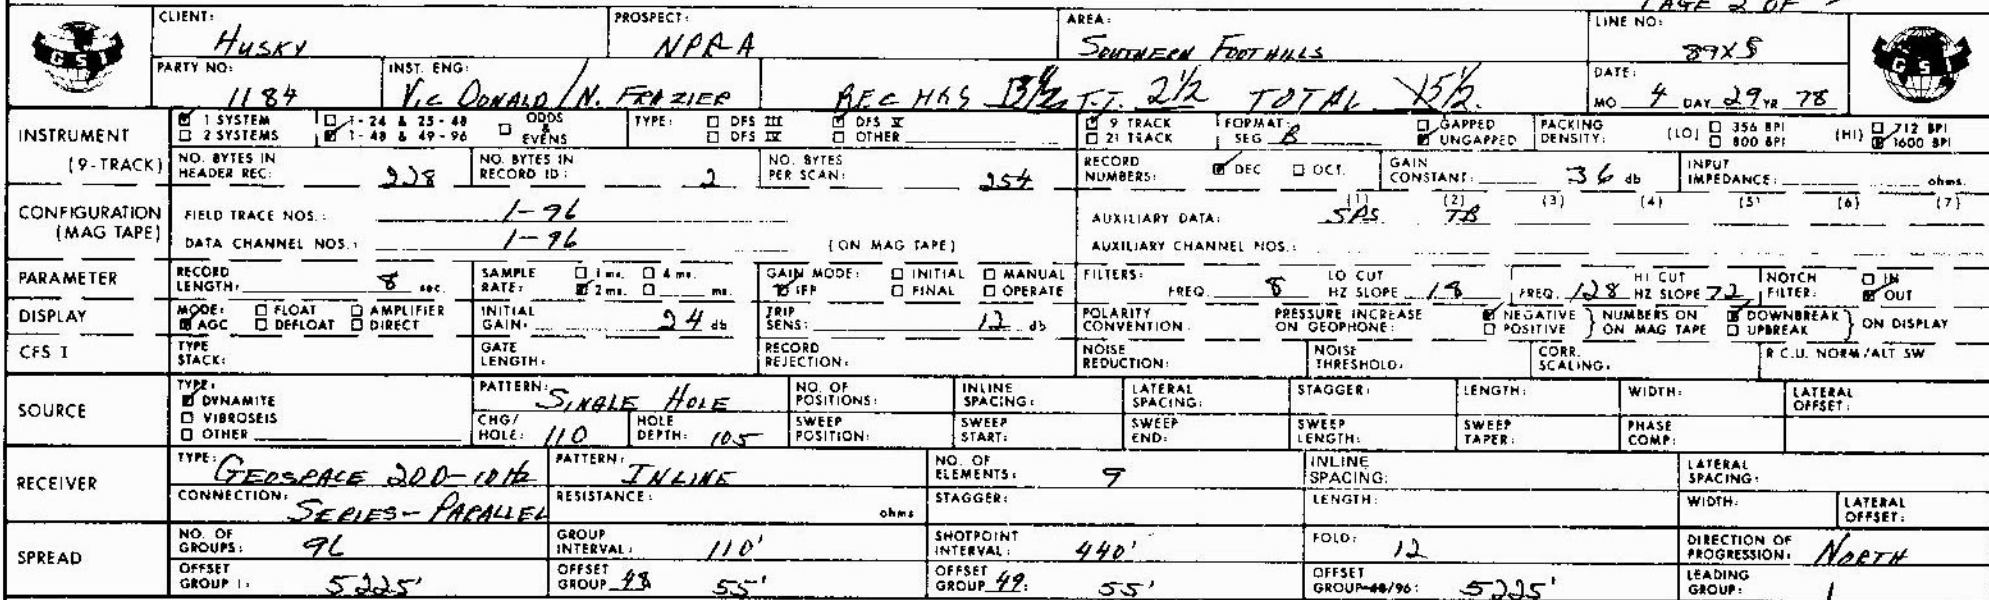 PAGE 2 OF
CLIENT: HUSKY PROSPECT: NPRA AREA: SOUTHERN FOOTHILLS LINE NO: 89X8
GSI GSI
PARTY NO: 1184 INST. ENG: VIC DONALD/N. FRAZIER REC HRS 13 1/2 T.T. 2 1/2 TOTAL 15 1/2 DATE: MO 4 DAY 29 YR 78
INSTRUMENT 1 SYSTEM 1-24 & 25-48 ODDS & EVENS TYPE: DFS III DFS V 9 TRACK FORMAT: GAPPED PACKING DENSITY: (LO) 356 BPI (HI) 712 BPI
2 SYSTEMS 1-48 & 49-96 DFS IV OTHER 21 TRACK SEG B UNGAPPED 800 BPI 1600 BPI
(9-TRACK) NO. BYTES IN HEADER REC: 228 NO. BYTES IN RECORD ID: 2 NO. BYTES PER SCAN: 254 RECORD NUMBERS: DEC OCT. GAIN CONSTANT: 36 db INPUT IMPEDANCE: ohms.
CONFIGURATION FIELD TRACE NOS.: 1-96 AUXILIARY DATA: (1) SAS (2) TB (3) (4) (5) (6) (7)
(MAG TAPE) DATA CHANNEL NOS.: 1-96 (ON MAG TAPE) AUXILIARY CHANNEL NOS.:
PARAMETER RECORD LENGTH: 8 sec. SAMPLE RATE: 1 ms. 4 ms. 2 ms. ms. GAIN MODE: INITIAL MANUAL IFP FINAL OPERATE FILTERS: FREQ. 8 LO CUT HZ SLOPE 18 FREQ. 128 HI CUT HZ SLOPE 72 NOTCH FILTER: IN OUT
DISPLAY MODE: FLOAT AMPLIFIER AGC DEFLOAT DIRECT INITIAL GAIN: 24 db TRIP SENS: 12 db POLARITY CONVENTION: PRESSURE INCREASE ON GEOPHONE: NEGATIVE POSITIVE } NUMBERS ON MAG TAPE DOWNBREAK UPBREAK } ON DISPLAY
CFS I TYPE STACK: GATE LENGTH: RECORD REJECTION: NOISE REDUCTION: NOISE THRESHOLD: CORR. SCALING: R C.U. NORM/ALT SW
SOURCE TYPE: DYNAMITE VIBROSEIS OTHER PATTERN: SINGLE HOLE NO. OF POSITIONS: INLINE SPACING: LATERAL SPACING: STAGGER: LENGTH: WIDTH: LATERAL OFFSET:
CHG/HOLE: 110 HOLE DEPTH: 105 SWEEP POSITION: SWEEP START: SWEEP END: SWEEP LENGTH: SWEEP TAPER: PHASE COMP:
RECEIVER TYPE: GEOSPACE 20D-10Hz PATTERN: INLINE NO. OF ELEMENTS: 9 INLINE SPACING: LATERAL SPACING:
CONNECTION: SERIES-PARALLEL RESISTANCE: ohms STAGGER: LENGTH: WIDTH: LATERAL OFFSET:
SPREAD NO. OF GROUPS: 96 GROUP INTERVAL: 110' SHOTPOINT INTERVAL: 440' FOLD: 12 DIRECTION OF PROGRESSION: NORTH
OFFSET GROUP 1: 5225' OFFSET GROUP 48 55' OFFSET GROUP 49: 55' OFFSET GROUP 48/96: 5225' LEADING GROUP: 1